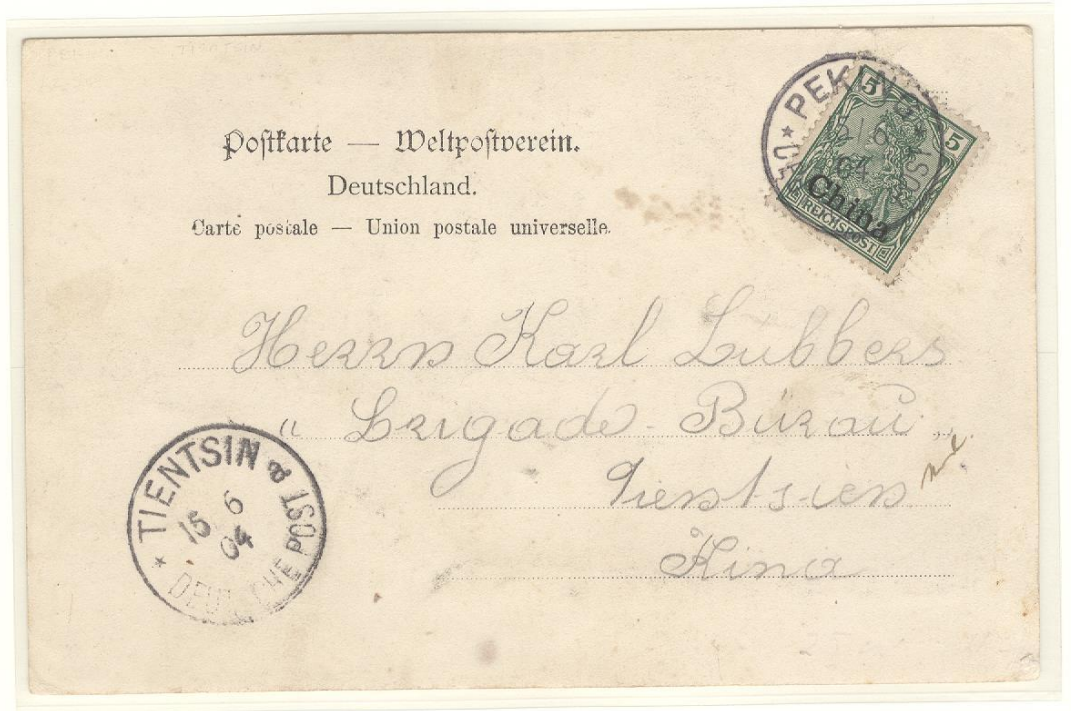 Postkarte — Weltpostverein.
Deutschland.
Carte postale — Union postale universelle.
PEKING
04
5 5
China
REICHSPOST
Herrn Karl Lübbers
„ Brigade-Bürau „
Tientsien
Kina
TIENTSIN a
15 6
04
DEUTSCHE POST